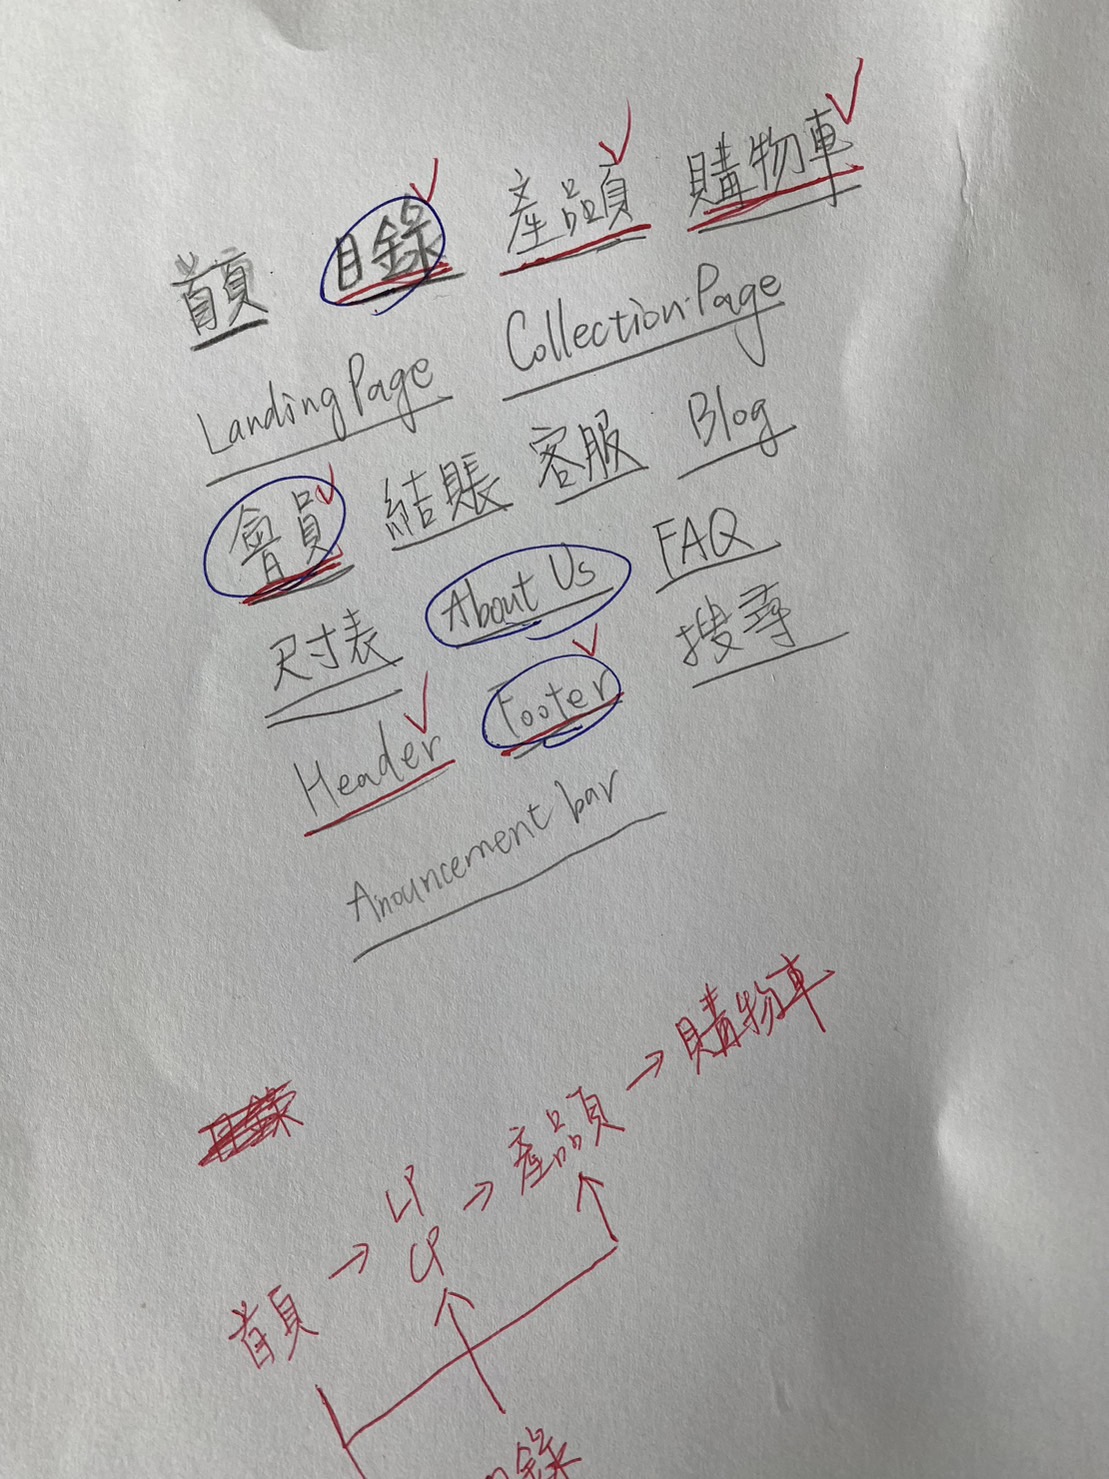 首頁 目錄 產品頁 購物車
Landing Page Collection Page
會員 結賬 客服 Blog
尺寸表 About Us FAQ
Header Footer 搜尋
Anouncement bar
目錄
首頁 → LP CP → 產品頁 → 購物車
錄